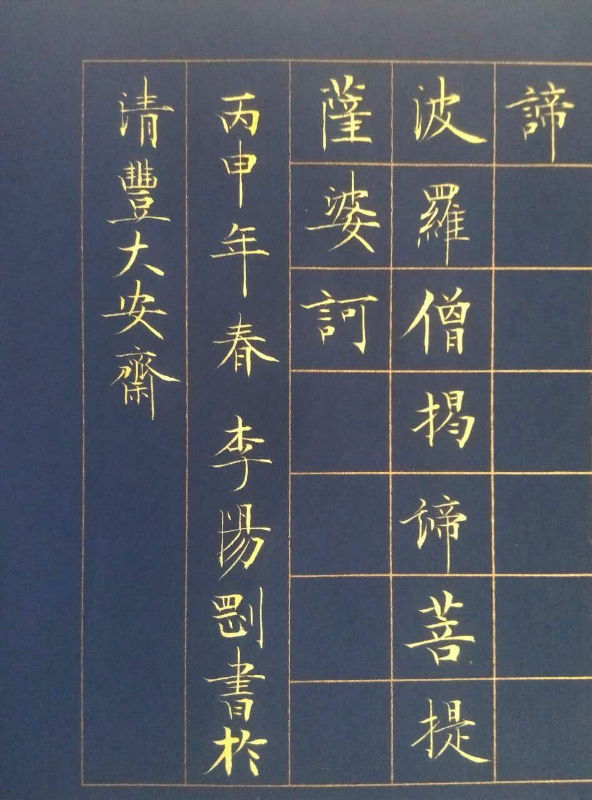 諦
波羅僧揭諦菩提
薩婆訶
丙申年春 李陽剛書於
清豐大安齋